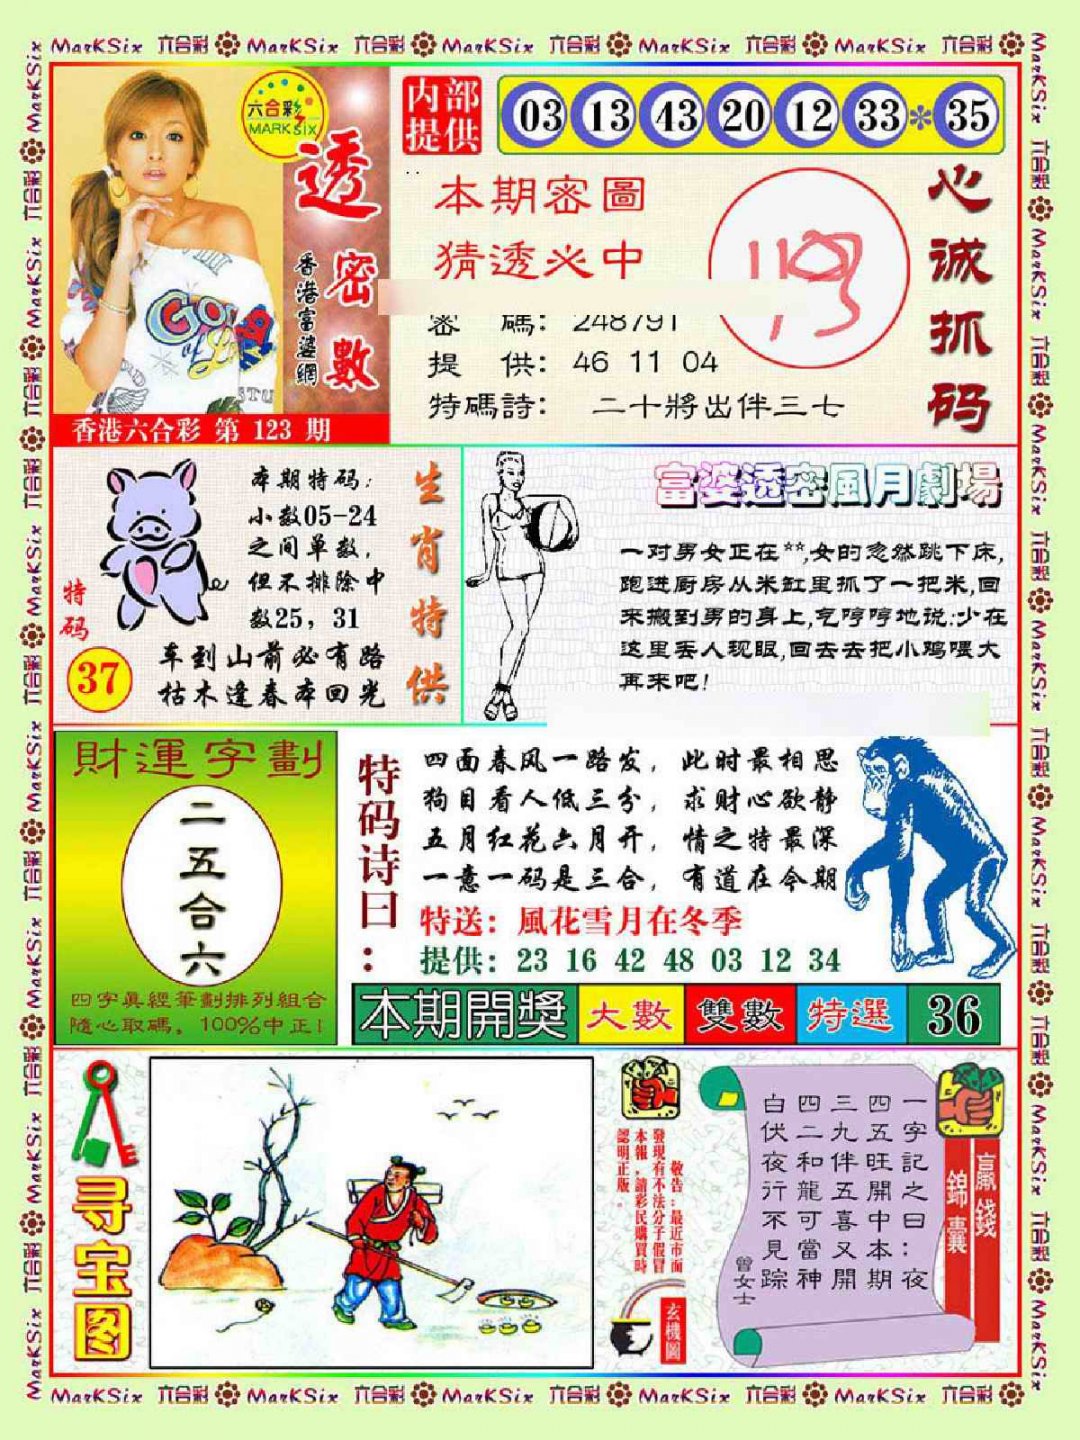 MarKSix 六合彩 MarKSix 六合彩 MarKSix 六合彩 MarKSix 六合彩 MarKSix 六合彩
六合彩
MARK SIX
透密數
香港富婆網
香港六合彩 第 123 期
内部
提供
03 13 43 20 12 33 * 35
本期密圖
猜透必中
密 碼: 248791
提 供: 46 11 04
特碼詩: 二十將出伴三七
心诚抓码
特码
37
本期特码:
小数05-24
之间单数,
但不排除中
数25,31
车到山前必有路
枯木逢春本回光
生肖特供
富婆透密風月劇場
一对男女正在**,女的忽然跳下床,
跑进厨房从米缸里抓了一把米,回
来搬到男的身上,气哼哼地说:少在
这里丢人现眼,回去去把小鸡喂大
再来吧!
財運字劃
二五合六
四字真經筆劃排列組合
隨心取碼。100%中正!
特码诗曰:
四面春风一路发,此时最相思
狗目看人低三分,求财心欲静
五月红花六月开,情之特最深
一意一码是三合,有道在今期
特送:風花雪月在冬季
提供:23 16 42 48 03 12 34
本期開獎 大數 雙數 特選 36
寻宝图
敬告:最近市面
發現有不法分子假冒
本報,請彩民購買時
認明正版。
玄機圖
一字記之曰:夜
四五旺開中本期
三九伴五喜又開
四二和龍可當神
白伏夜行不見踪
曾女士
贏錢
錦囊
MarKSix 六合彩 MarKSix 六合彩 MarKSix 六合彩 MarKSix 六合彩 MarKSix 六合彩